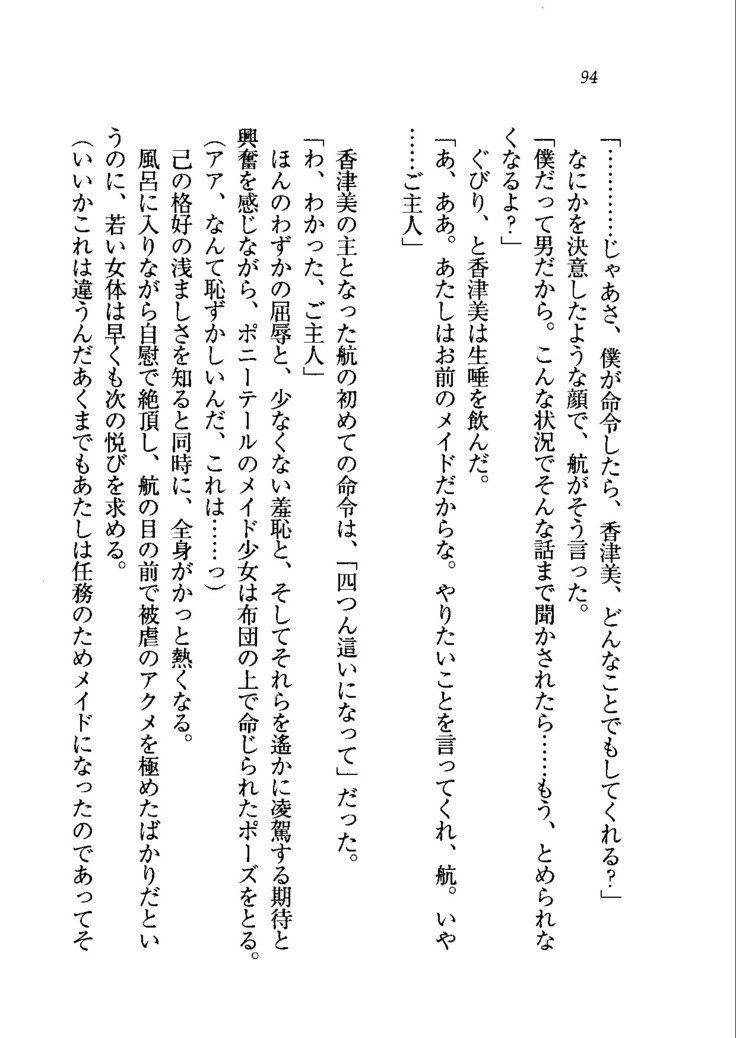 94
「…………じゃあさ、僕が命令したら、香津美、どんなことでもしてくれる？」
なにかを決意したような顔で、航がそう言った。
「僕だって男だから。こんな状況でそんな話まで聞かされたら……もう、とめられな
くなるよ？」
ぐびり、と香津美は生唾を飲んだ。
「あ、ああ。あたしはお前のメイドだからな。やりたいことを言ってくれ、航。いや
……ご主人」
香津美の主となった航の初めての命令は、「四つん這いになって」だった。
「わ、わかった、ご主人」
ほんのわずかの屈辱と、少なくない羞恥と、そしてそれらを遙かに凌駕する期待と
興奮を感じながら、ポニーテールのメイド少女は布団の上で命じられたポーズをとる。
（アア、なんて恥ずかしいんだ、これは……っ）
己の格好の浅ましさを知ると同時に、全身がかっと熱くなる。
風呂に入りながら自慰で絶頂し、航の目の前で被虐のアクメを極めたばかりだとい
うのに、若い女体は早くも次の悦びを求める。
（いいかこれは違うんだあくまでもあたしは任務のためメイドになったのであってそ